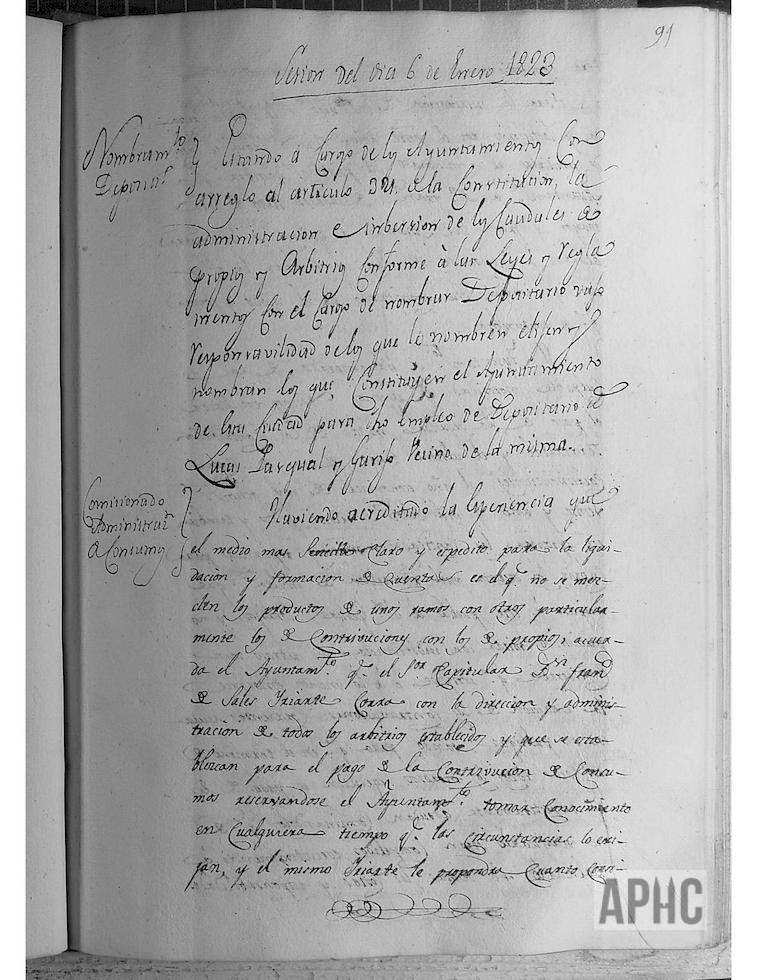 91
Sesion del dia 6 de Enero 1823
Nombram.to
Deposit.o
Estando à Cargo de los Ayuntamientos Con
arreglo al articulo 321. de la Constitucion, la
administracion e inbersion de los Caudales de
propios y Arbitrios Conforme à las Leyes y Regla
mentos Con el Cargo de nombrar Depositario vajo
responsavilidad de los que le nombren elijen y
nombran los que Constituyen el Ayuntamiento
de esta Ciudad para dho empleo de Depositario à
Lucas Pasqual y Garip Vecino de la misma.
Comisionado
Administrac.n
de Consumos
Haviendo acreditado la Esperiencia que
el medio mas Sencillo Claro y espedito para la liqui-
dacion y formacion de Cuentas es el q.e no se mez-
clen los productos de unos ramos con otros particular-
mente los de Contrivuciones con los de propios, acuer-
da el Ayuntam.to q.e el S.or Capitular D.n Fran.co
de Sales Yriarte Corra con la direccion y adminis-
tracion de todos los arbitrios establecidos y que se esta-
blezcan para el pago de la Contrivucion de Consu-
mos reservandose el Ayuntam.to tomar Conocimiento
en Cualquiera tiempo q.e las Circunstancias lo exi-
jan, y el mismo Yriarte le propondra Cuanto Consi-
APHC